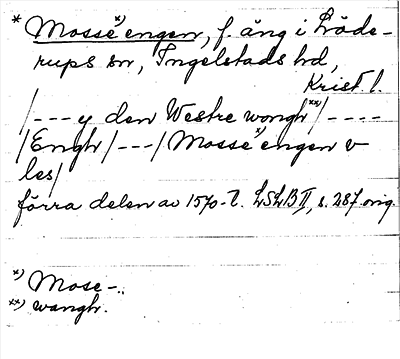 * Mosse*⁾engen, f. äng i Löde-
rups sn, Ingelstads hd,
Krist. l.
/---y den Westre wongh**⁾/----
/Engh/---/Mosse*⁾engen v
les/
förra delen av 1570-t. LSLB II, s. 287. orig.
*) Mose-.
**) wangh.